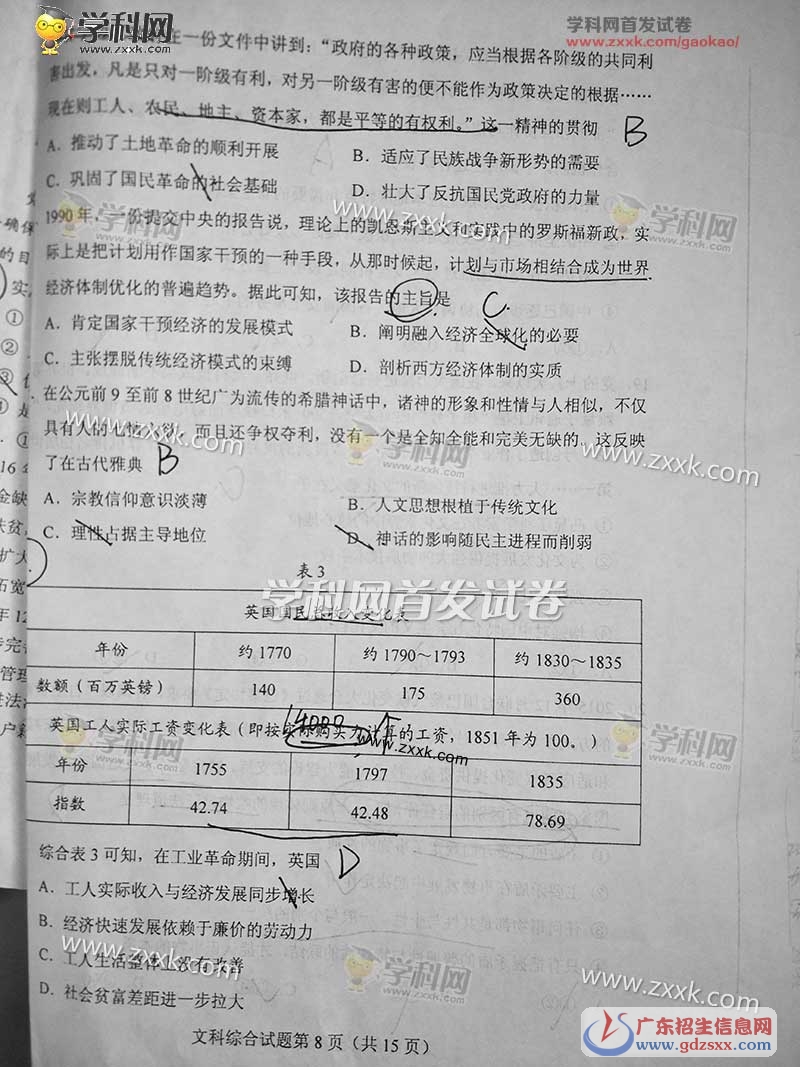 学科网
www.zxxk.com
学科网首发试卷
www.zxxk.com/gaokao/
在一份文件中讲到：“政府的各种政策，应当根据各阶级的共同利
害出发，凡是只对一阶级有利，对另一阶级有害的便不能作为政策决定的根据……
现在则工人、农民、地主、资本家，都是平等的有权利。”这一精神的贯彻 B
A．推动了土地革命的顺利开展 B．适应了民族战争新形势的需要
C．巩固了国民革命的社会基础 D．壮大了反抗国民党政府的力量
1990 年，一份提交中央的报告说，理论上的凯恩斯主义和实践中的罗斯福新政，实
际上是把计划用作国家干预的一种手段，从那时候起，计划与市场相结合成为世界
经济体制优化的普遍趋势。据此可知，该报告的主旨是 C
A．肯定国家干预经济的发展模式 B．阐明融入经济全球化的必要
C．主张摆脱传统经济模式的束缚 D．剖析西方经济体制的实质
在公元前 9 至前 8 世纪广为流传的希腊神话中，诸神的形象和性情与人相似，不仅
具有人的七情六欲，而且还争权夺利，没有一个是全知全能和完美无缺的。这反映
了在古代雅典 B
A．宗教信仰意识淡薄 B．人文思想根植于传统文化
C．理性占据主导地位 D．神话的影响随民主进程而削弱
表 3
学科网首发试卷
英国国民总收入变化表
年份 约 1770 约 1790～1793 约 1830～1835
数额（百万英镑） 140 175 360
英国工人实际工资变化表（即按实际购买力计算的工资，1851 年为 100。）
年份 1755 1797 1835
指数 42.74 42.48 78.69
综合表 3 可知，在工业革命期间，英国 D
A．工人实际收入与经济发展同步增长
B．经济快速发展依赖于廉价的劳动力
C．工人生活整体上没有改善
D．社会贫富差距进一步拉大
文科综合试题第 8 页（共 15 页）
广东招生信息网
www.gdzsxx.com